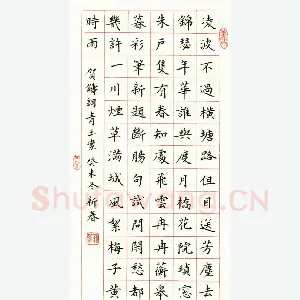 凌波不過橫塘路但目送芳塵去
錦瑟年華誰與度月橋花院瑣窗
朱戶隻有春知處飛雲冉冉蘅皋
暮彩筆新題斷腸句試問閒愁都
幾許一川煙草滿城風絮梅子黃
時雨
賀鑄詞青玉案 癸未冬祈春